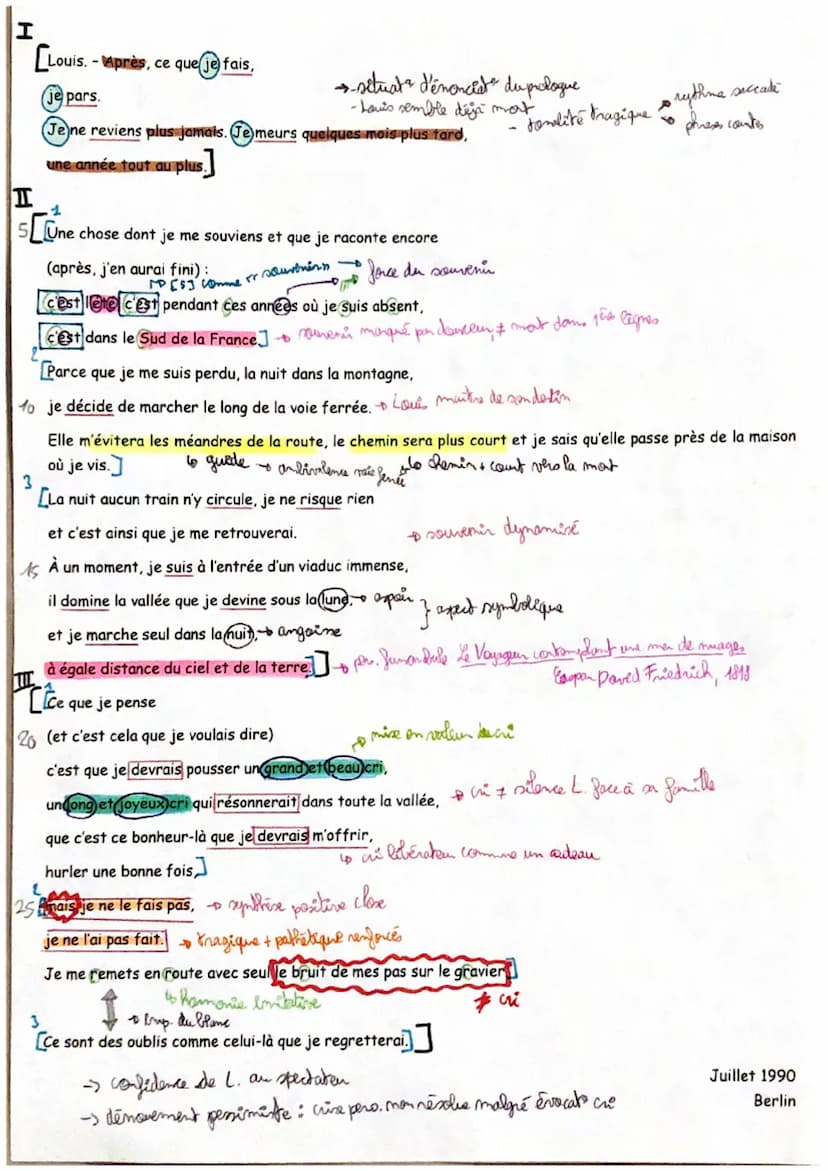 I
Louis. - Après, ce que je fais,
je pars.
→ situat° d'énonciat° du prologue
- Louis semble déjà mort
- tonalité tragique → rythme saccadé
→ phrases courtes
Je ne reviens plus jamais. Je meurs quelques mois plus tard,
une année tout au plus.
II
1
5 Une chose dont je me souviens et que je raconte encore
(après, j'en aurai fini) :
→ [s] comme "souvenir" → force du souvenir
c'est l'été c'est pendant ces années où je suis absent,
c'est dans le Sud de la France. → souvenir marqué par douceur, ≠ mort dans 1ères lignes
2
Parce que je me suis perdu, la nuit dans la montagne,
10 je décide de marcher le long de la voie ferrée. → Louis maître de son destin
Elle m'évitera les méandres de la route, le chemin sera plus court et je sais qu'elle passe près de la maison
où je vis. ↳ guide → ambivalence voie ferrée ↳ chemin + court vers la mort
3
La nuit aucun train n'y circule, je ne risque rien
et c'est ainsi que je me retrouverai. → souvenir dynamisé
15 À un moment, je suis à l'entrée d'un viaduc immense,
il domine la vallée que je devine sous la lune, → espoir } aspect symbolique
et je marche seul dans la nuit, → angoisse
à égale distance du ciel et de la terre. → Le Voyageur contemplant une mer de nuages
Caspar David Friedrich, 1818
III
1
Ce que je pense
20 (et c'est cela que je voulais dire) → mise en valeur du cri
c'est que je devrais pousser un grand et beau cri,
un long et joyeux cri qui résonnerait dans toute la vallée, → cri ≠ silence L. face à sa famille
que c'est ce bonheur-là que je devrais m'offrir,
↳ cri libérateur comme un cadeau
hurler une bonne fois,
2
25 mais je ne le fais pas, → synthèse positive close
je ne l'ai pas fait. → tragique + pathétique renforcés
Je me remets en route avec seul le bruit de mes pas sur le gravier.
↳ harmonie imitative
≠ cri
→ imp. du blanc
3
Ce sont des oublis comme celui-là que je regretterai.
→ confidence de L. au spectateur
→ dénouement pessimiste : crise perso. non résolue malgré évocat° cri
Juillet 1990
Berlin